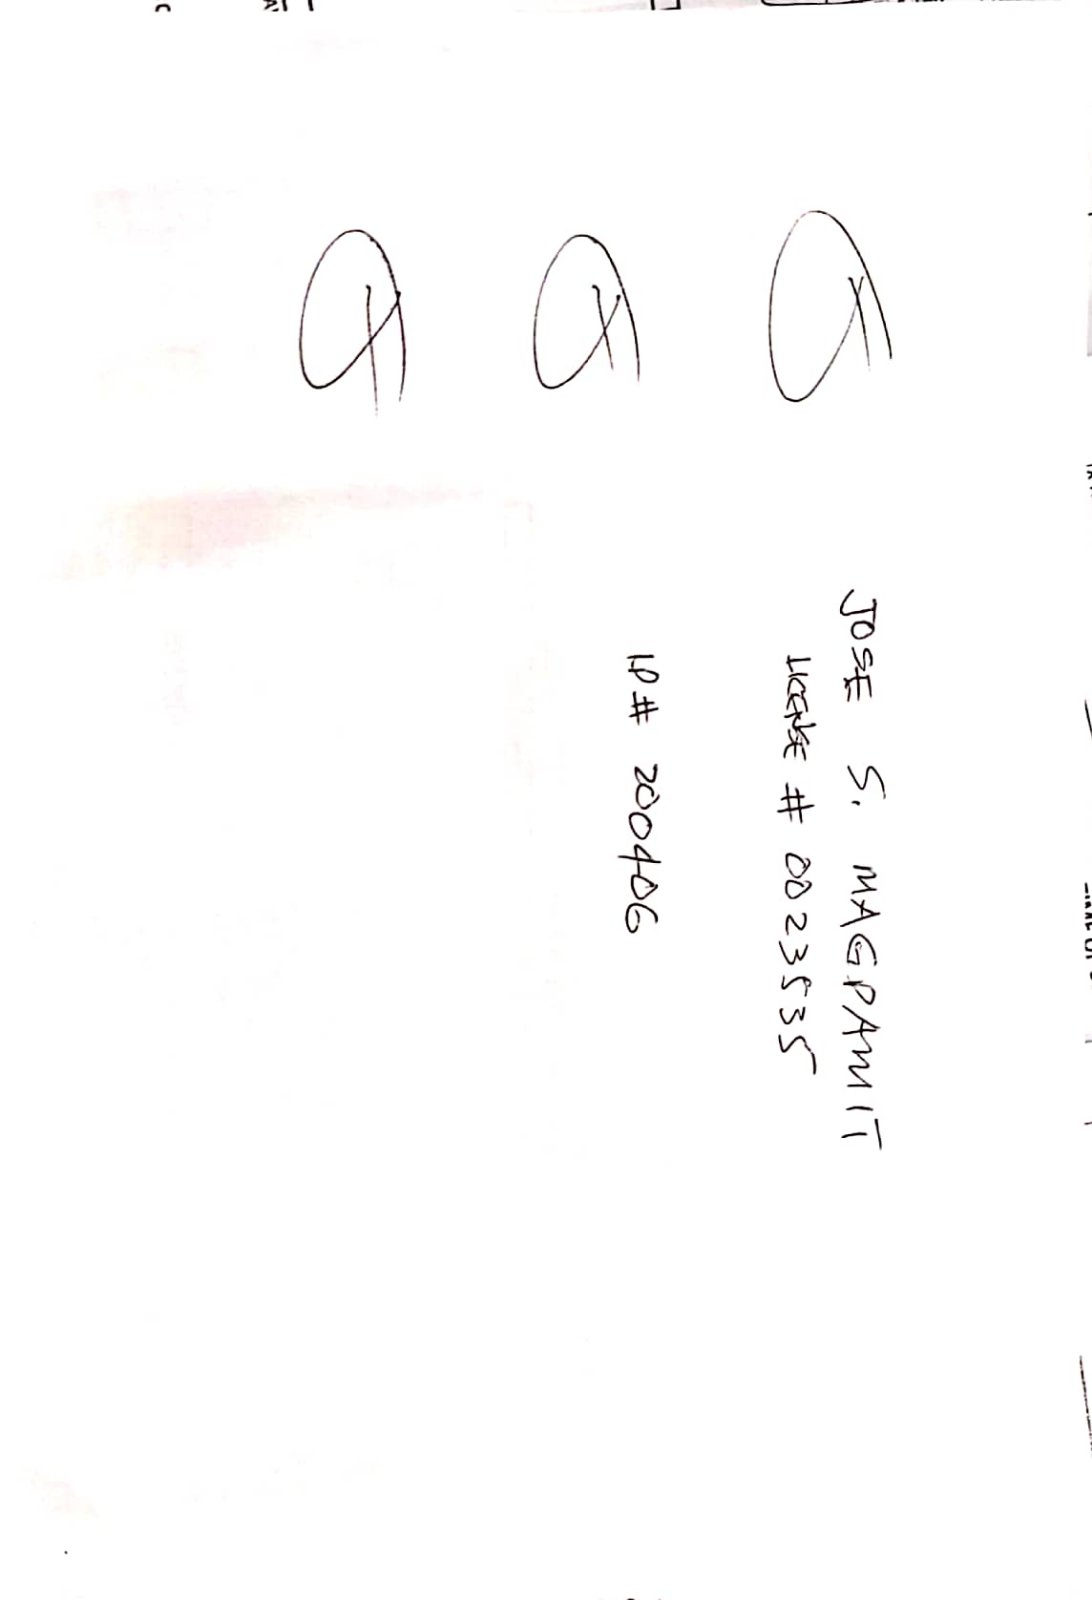 JOSE S. MAGPAWIT
LICENSE # 0023535
I.P # 200406